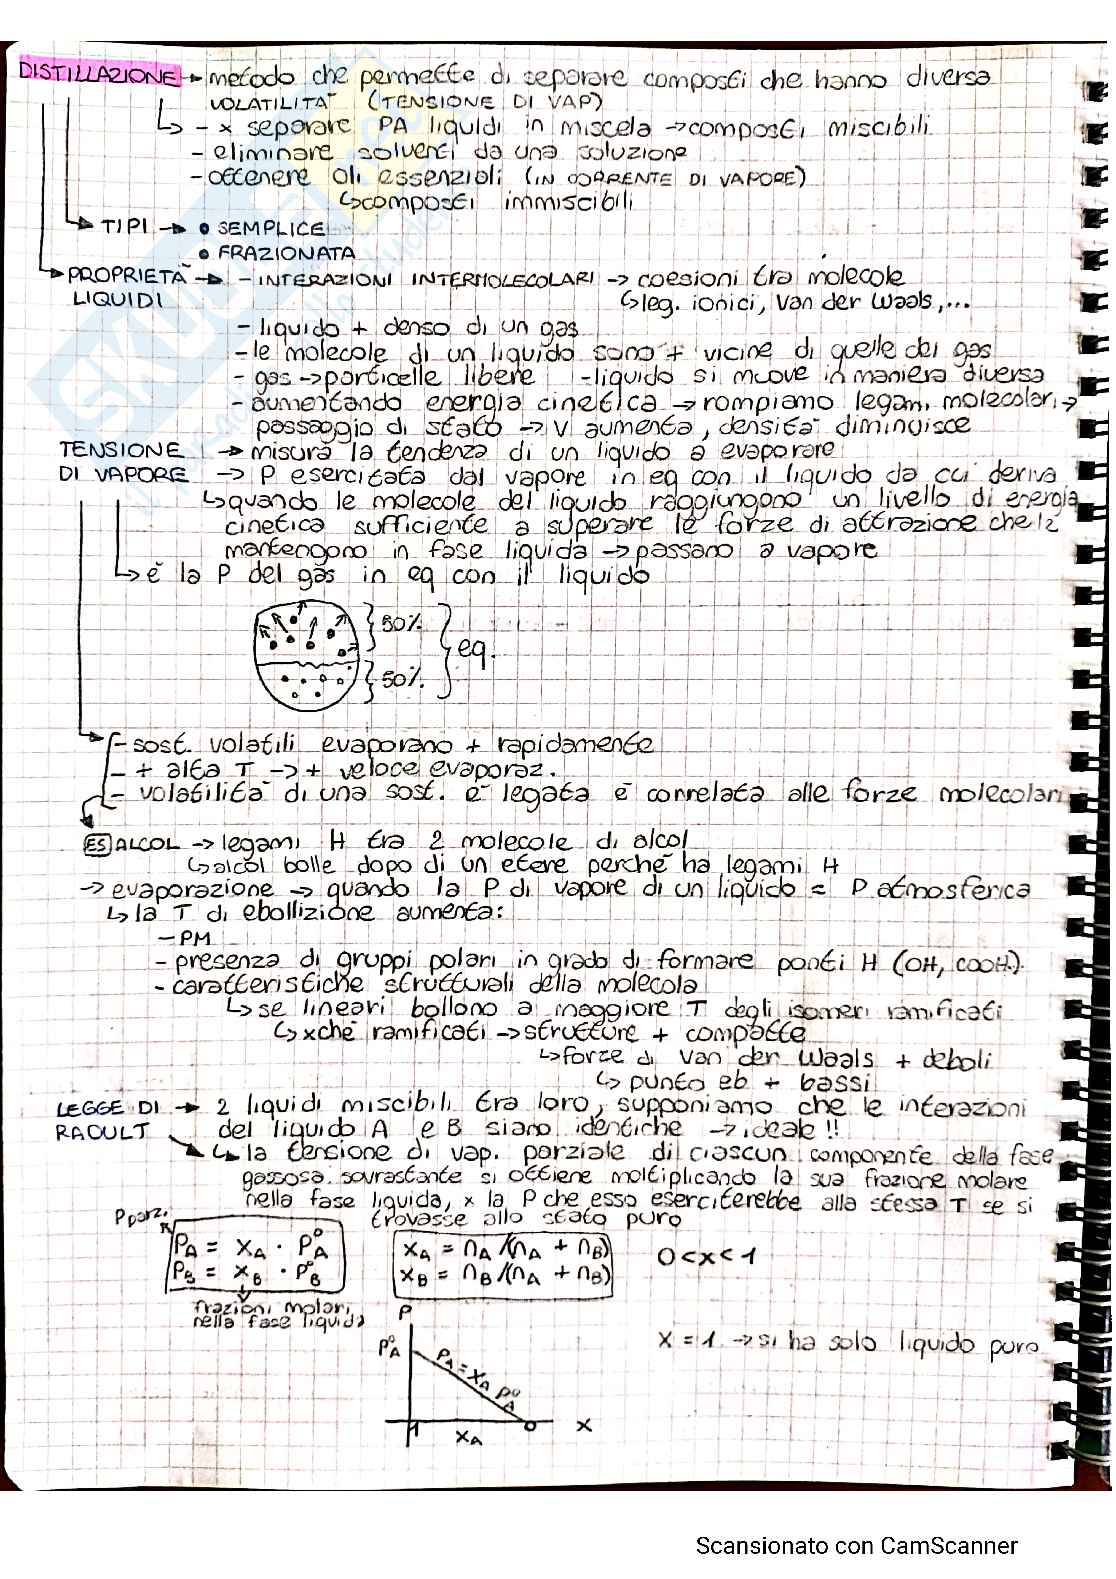 DISTILLAZIONE → metodo che permette di separare composti che hanno diversa
VOLATILITÀ (TENSIONE DI VAP)
↳ - x separare PA liquidi in miscela → composti miscibili
- eliminare solventi da una soluzione
- ottenere oli essenziali (IN CORRENTE DI VAPORE)
↳ composti immiscibili
TIPI → • SEMPLICE
• FRAZIONATA
PROPRIETÀ → - INTERAZIONI INTERMOLECOLARI → coesioni tra molecole
LIQUIDI ↳ leg. ionici, Van der Waals,...
- liquido + denso di un gas
- le molecole di un liquido sono + vicine di quelle dei gas
- gas → particelle libere - liquido si muove in maniera diversa
- aumentando energia cinetica → rompiamo legami molecolari →
passaggio di stato → V aumenta, densità diminuisce
TENSIONE → misura la tendenza di un liquido a evaporare
DI VAPORE → P esercitata dal vapore in eq con il liquido da cui deriva
↳ quando le molecole del liquido raggiungono un livello di energia
cinetica sufficiente a superare le forze di attrazione che le
mantengono in fase liquida → passano a vapore
↳ è la P del gas in eq con il liquido
50%
eq.
50%
- sost. volatili evaporano + rapidamente
- + alta T → + veloce evaporaz.
- volatilità di una sost. è legata e correlata alle forze molecolari
ES ALCOL → legami H tra 2 molecole di alcol
↳ alcol bolle dopo di un etere perché ha legami H
→ evaporazione → quando la P di vapore di un liquido = P atmosferica
↳ la T di ebollizione aumenta:
- PM
- presenza di gruppi polari in grado di formare ponti H (OH, COOH).
- caratteristiche strutturali della molecola
↳ se lineari bollono a maggiore T degli isomeri ramificati
↳ xchè ramificati → strutture + compatte
↳ forze di Van der Waals + deboli
↳ punto eb + bassi
LEGGE DI → 2 liquidi miscibili tra loro, supponiamo che le interazioni
RAOULT del liquido A e B siano identiche → ideale!!
↳ la tensione di vap. parziale di ciascun componente della fase
gassosa sovrastante si ottiene moltiplicando la sua frazione molare
nella fase liquida, x la P che esso eserciterebbe alla stessa T se si
trovasse allo stato puro
P parzi.
PA = XA · P°A
PB = XB · P°B
XA = nA /(nA + nB)
XB = nB /(nA + nB)
0 < x < 1
frazioni molari
nella fase liquida
P
P°A
PA = XA P°A
X = 1 → si ha solo liquido puro
1
0
X
XA
Scansionato con CamScanner